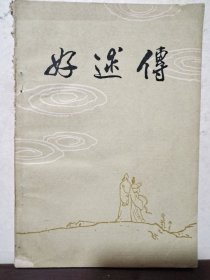 好逑傳